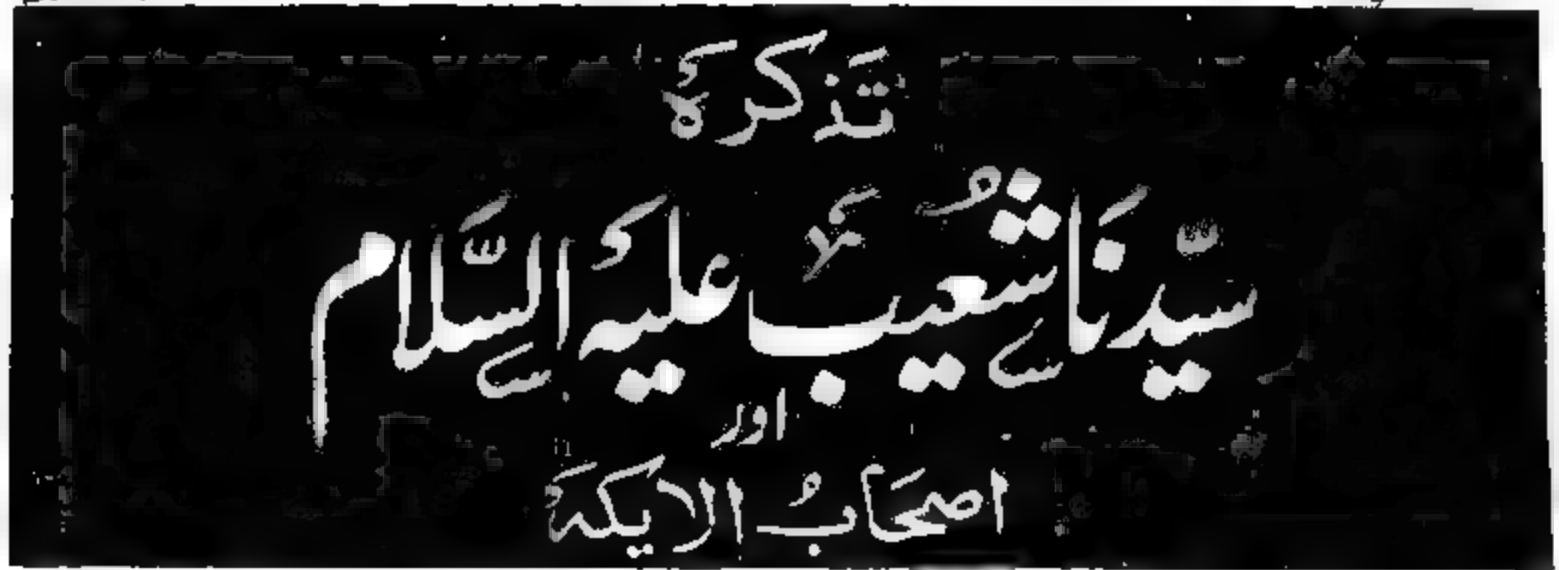 تَذکرۂ
سیّدنَا شُعیب علیہ السَّلام
اور
اصحَابُ الایکہ